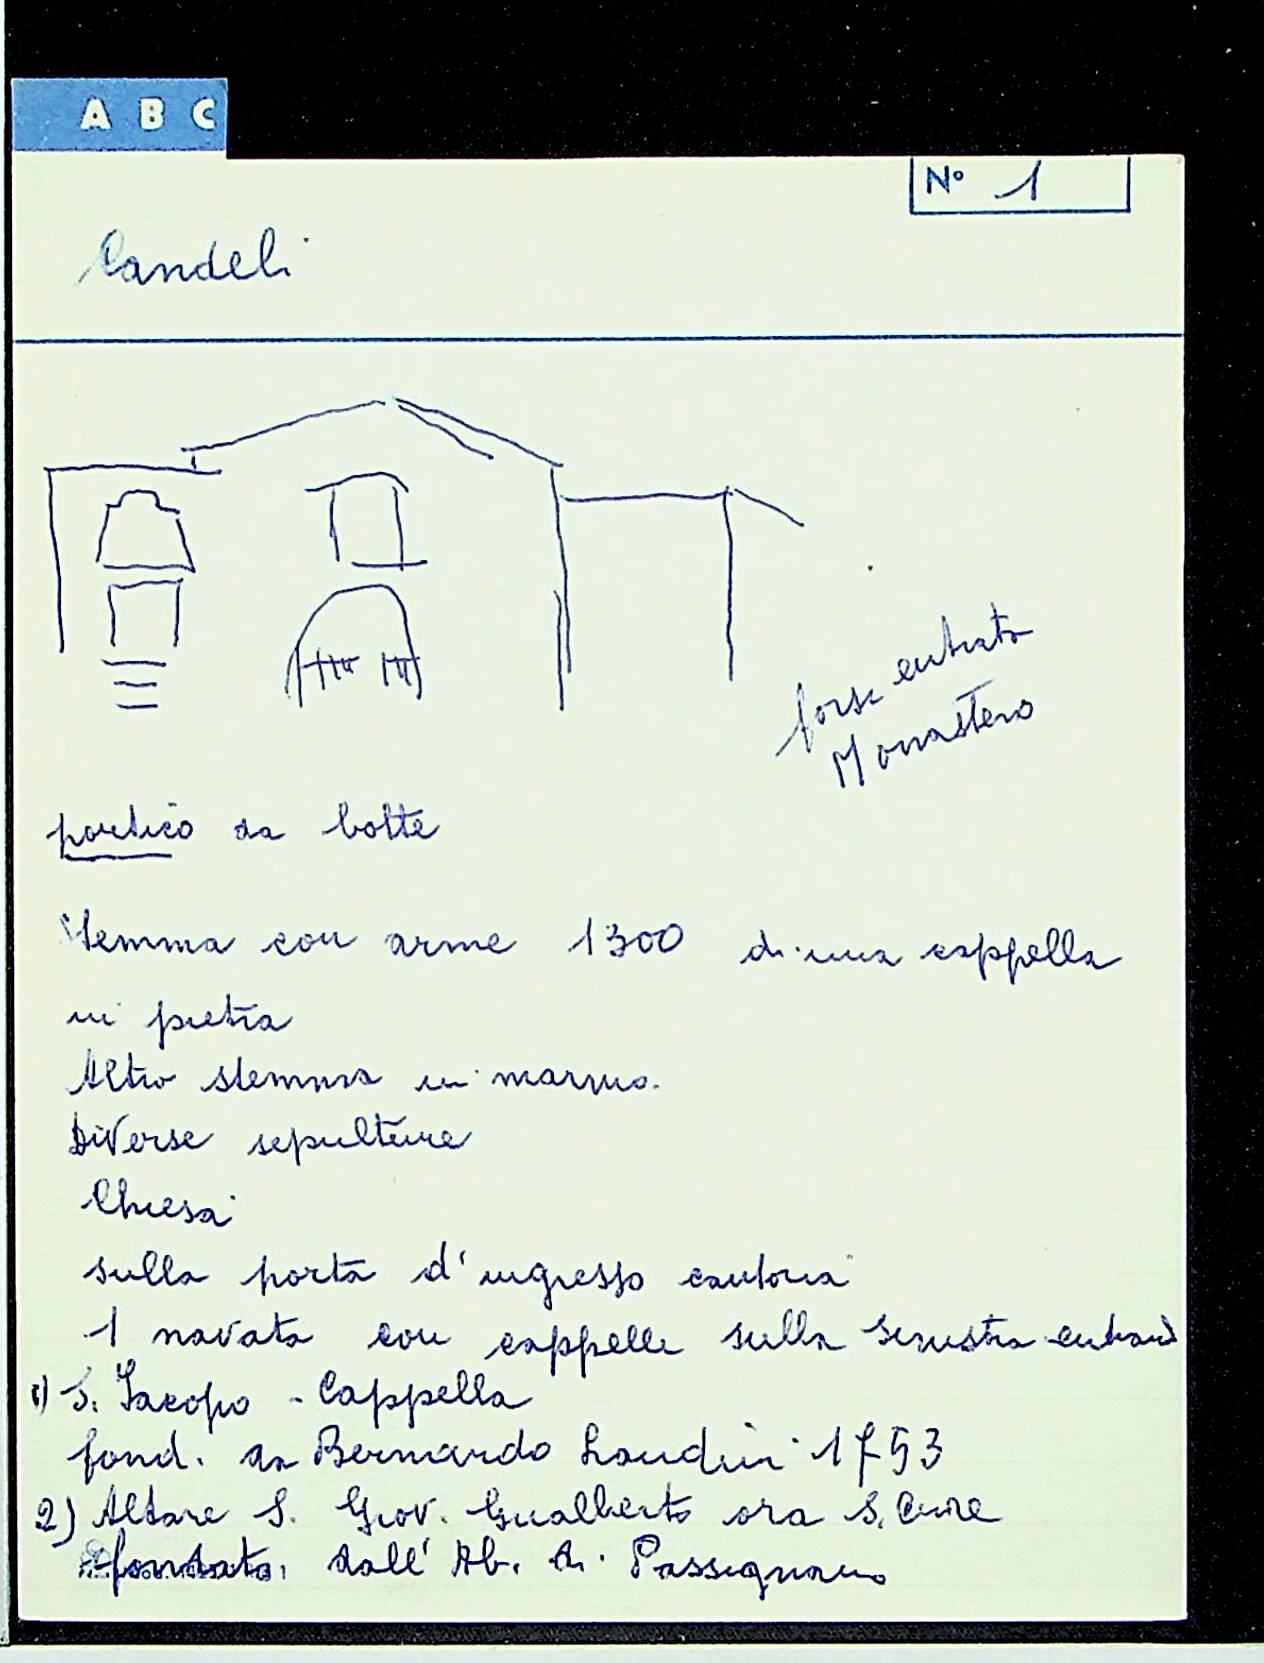 A B C
Nº 1
Candeli
forse entrata
Monastero
portico da botte
Stemma con arme 1300 di una cappella
in pietra
Altro stemma in marmo.
Diverse sepolture
Chiesa
sulla porta d'ingresso cantoria
1 navata con cappelle sulla sinistra entrand
1) S. Jacopo - Cappella
fond. da Bernardo Landini 1753
2) Altare S. Giov. Gualberto ora S. Cuore
fondato. dall' Ab. di Passignano